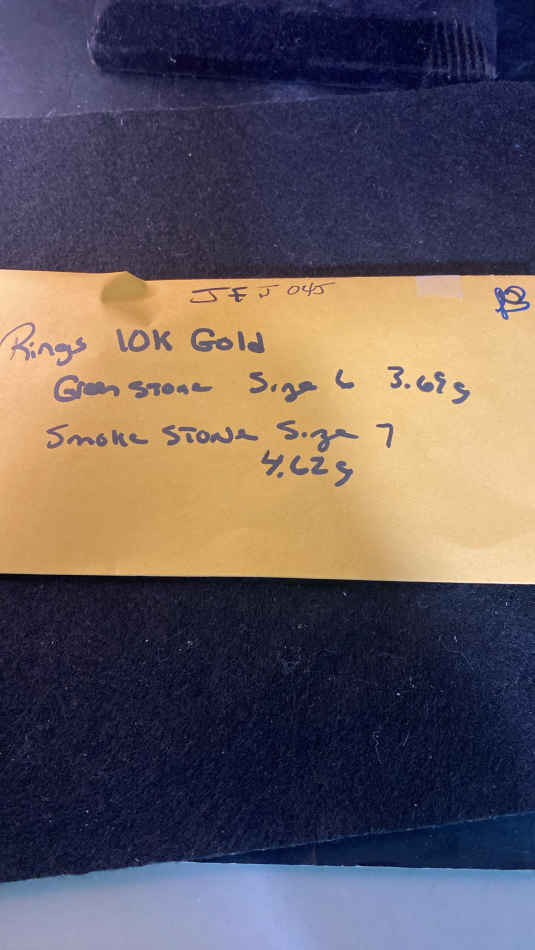 JEJ 045
Rings 10K Gold
Green Stone Size 6 3.69g
Smoke Stone Size 7
4.62g